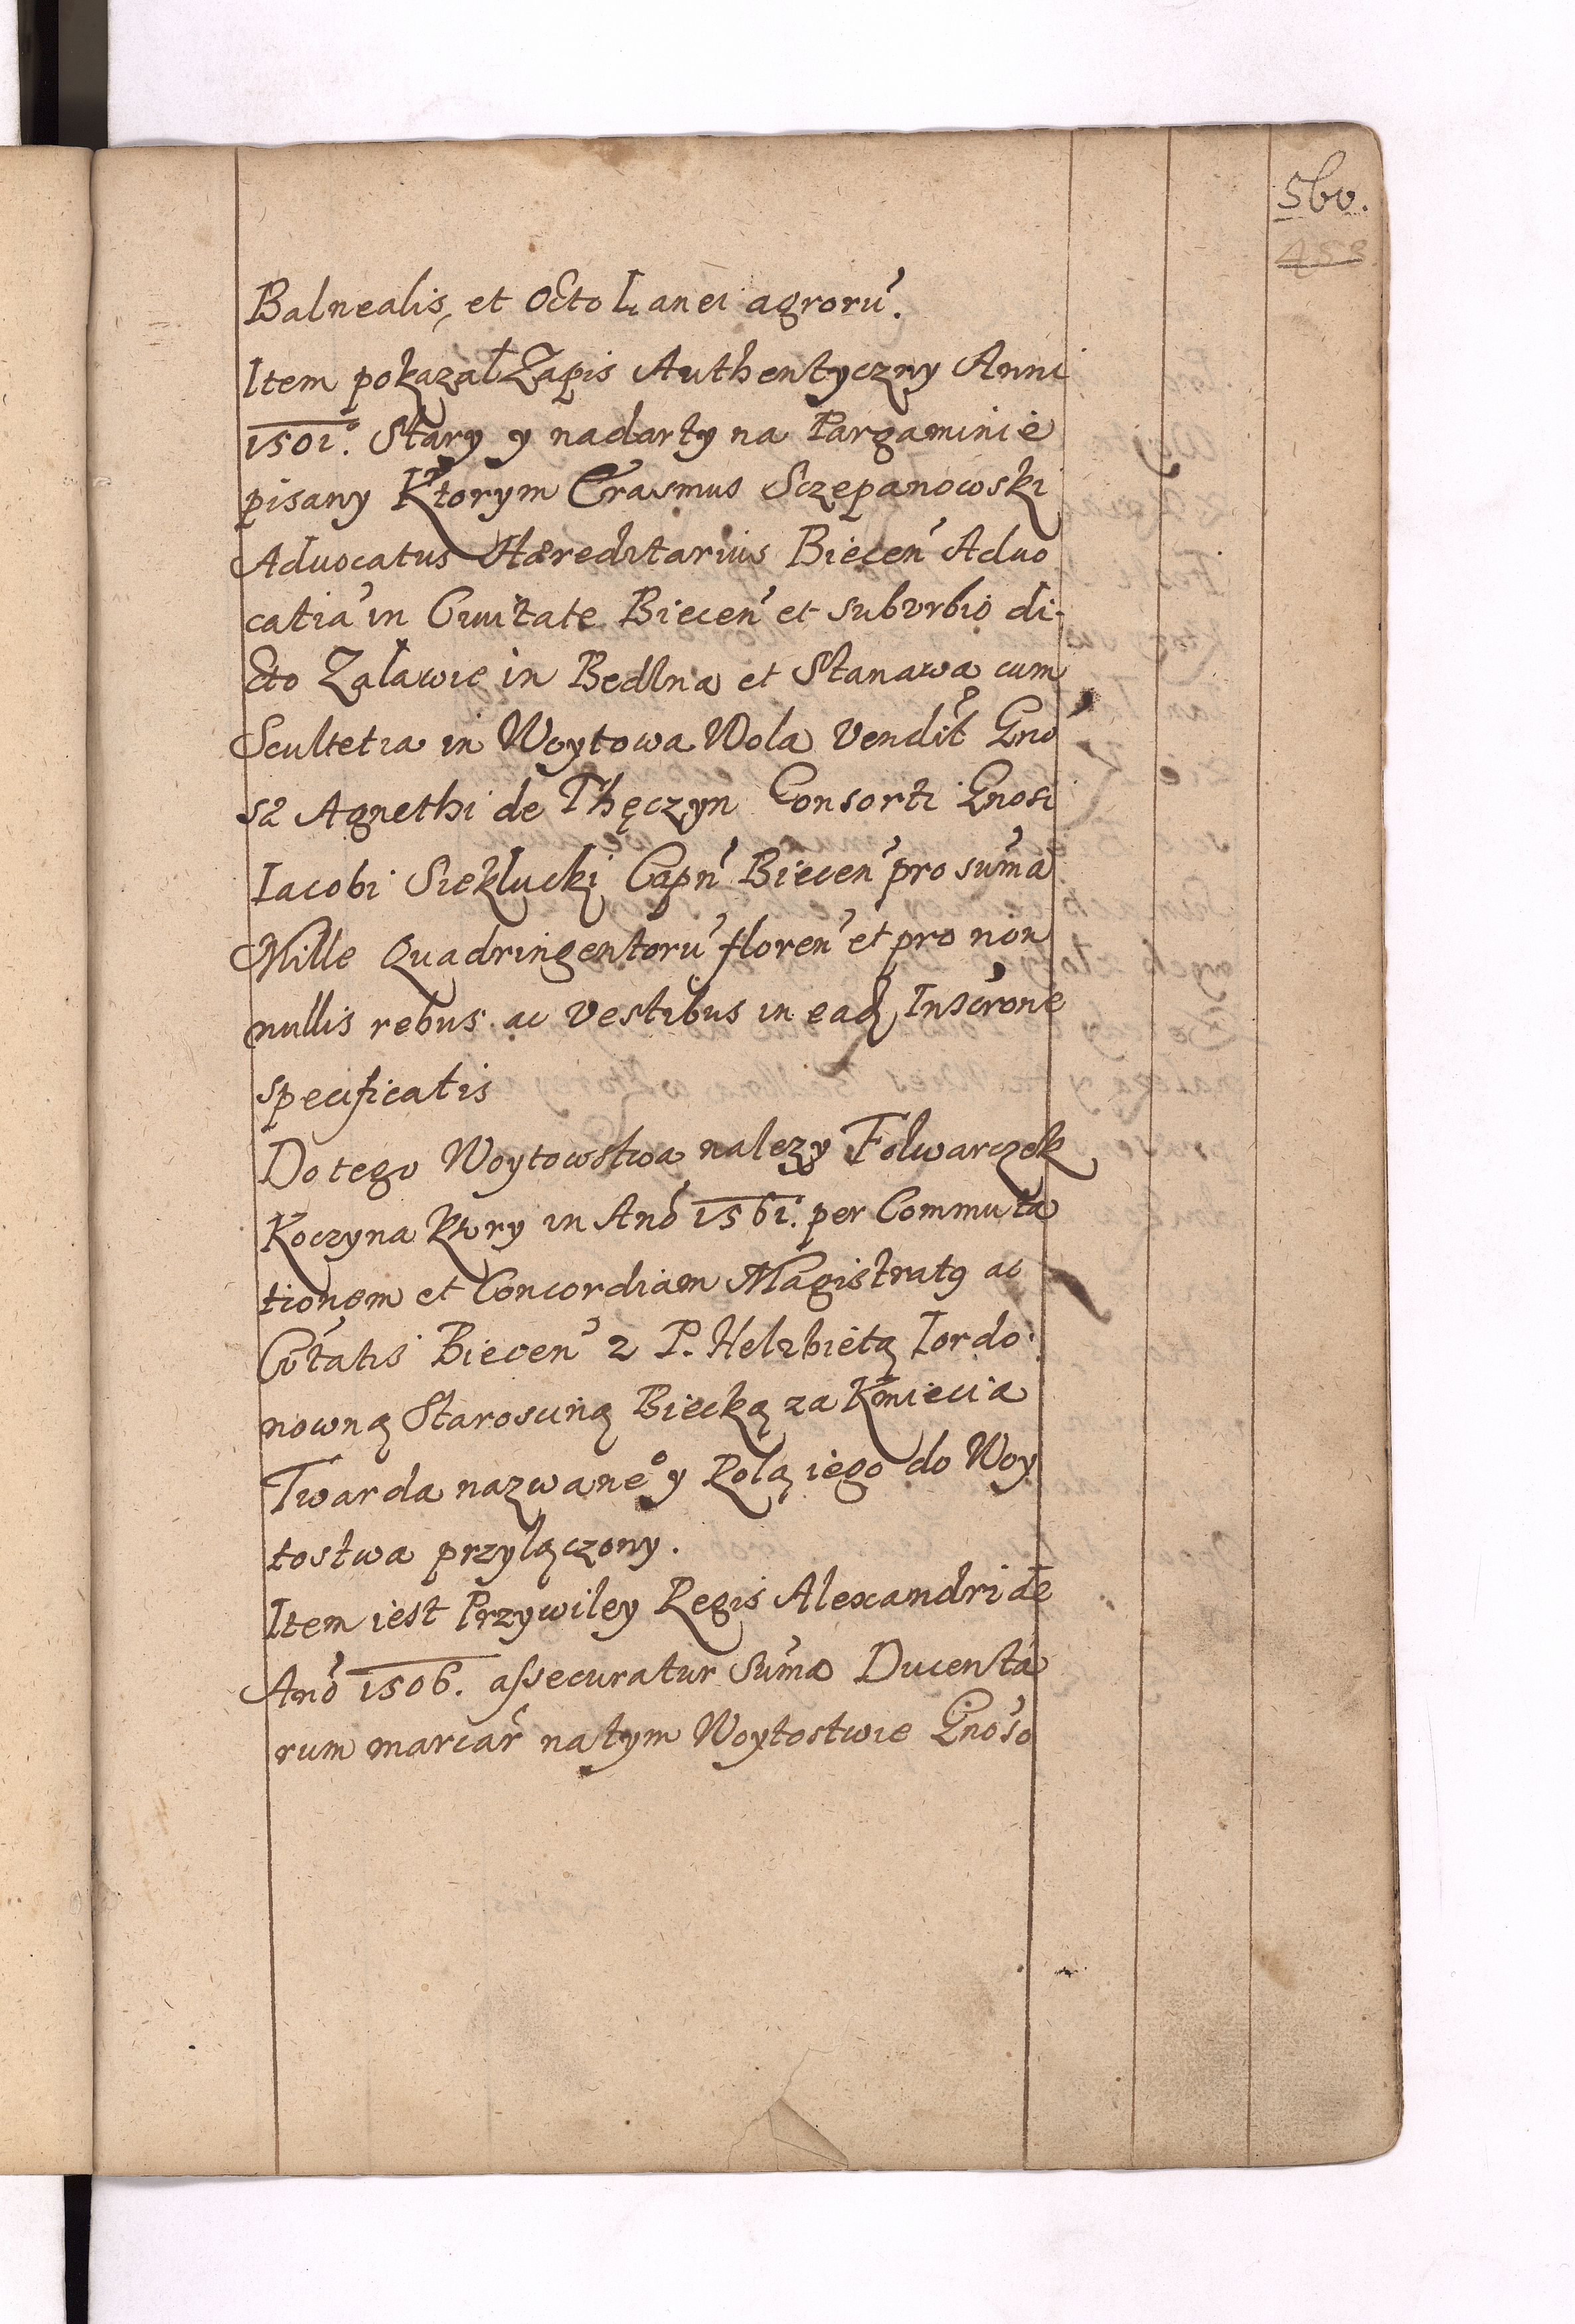 560.
458
Balnealis, et octo Lanei agroru̓.
Item pokazał Zapis Authentyczny Anni
1501º. Stary y nadarty na Pargaminie
pisany Ktorym Erasmus Sczepanowski
Advocatus Hæreditarius Biecen̓ Advo
catia̓ in Civitate Biecen̓ et subvrbio di-
cto Zalawie in Bedlna et Stanawa cum
Scultetia in Woytowa Wola Vendit Gno̓
sæ Agnethi de Thęczyn Consorti Gnosi
Iacobi Sieklucki Capn̓ Biecen̓ pro sum̓a
Mille Quadringentoru̓ floren̓ et pro non
nullis rebus ac vestibus in ead Inscr̓one
specificatis
Do tego Woytowstwa nalezy Folwarczek
Koczyna ktory in Ano̓ 1561. per Commuta
tionem et Concordiam Magistratꝯ ac
Ci̓tatis Biecen̓ z P. Helzbietą Iordo
nowną Starosciną Biecką za Kmiecia
Twarda nazwaneº y Rolą iego do Woy
tostwa przyłączony.
Item iest Przywiley Regis Alexandri de
Ano̓ 1506. assecuratur Sum̓a Ducenta
rum marcar̓ na tym Woytostwie Gno̓so